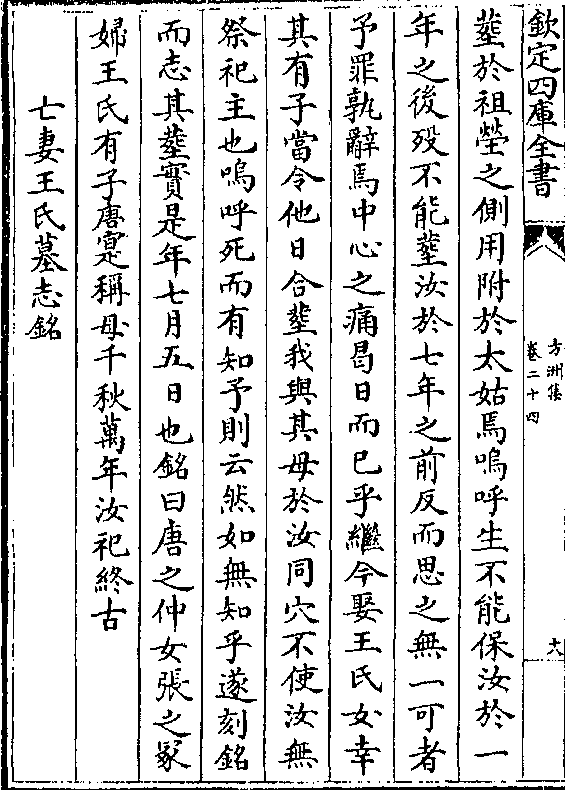 欽定四庫全書
方洲集
卷二十四
十八
塟於祖塋之側用附於太姑焉嗚呼生不能保汝於一
年之後殁不能塟汝於七年之前反而思之無一可者
予罪孰辭焉中心之痛曷日而已乎繼今娶王氏女幸
其有子當令他日合塟我與其母於汝同穴不使汝無
祭祀主也嗚呼死而有知予則云然如無知乎遂刻銘
而志其塟實是年七月五日也銘曰唐之仲女張之冢
婦王氏有子唐寔稱母千秋萬年汝祀終古
亡妻王氏墓志銘